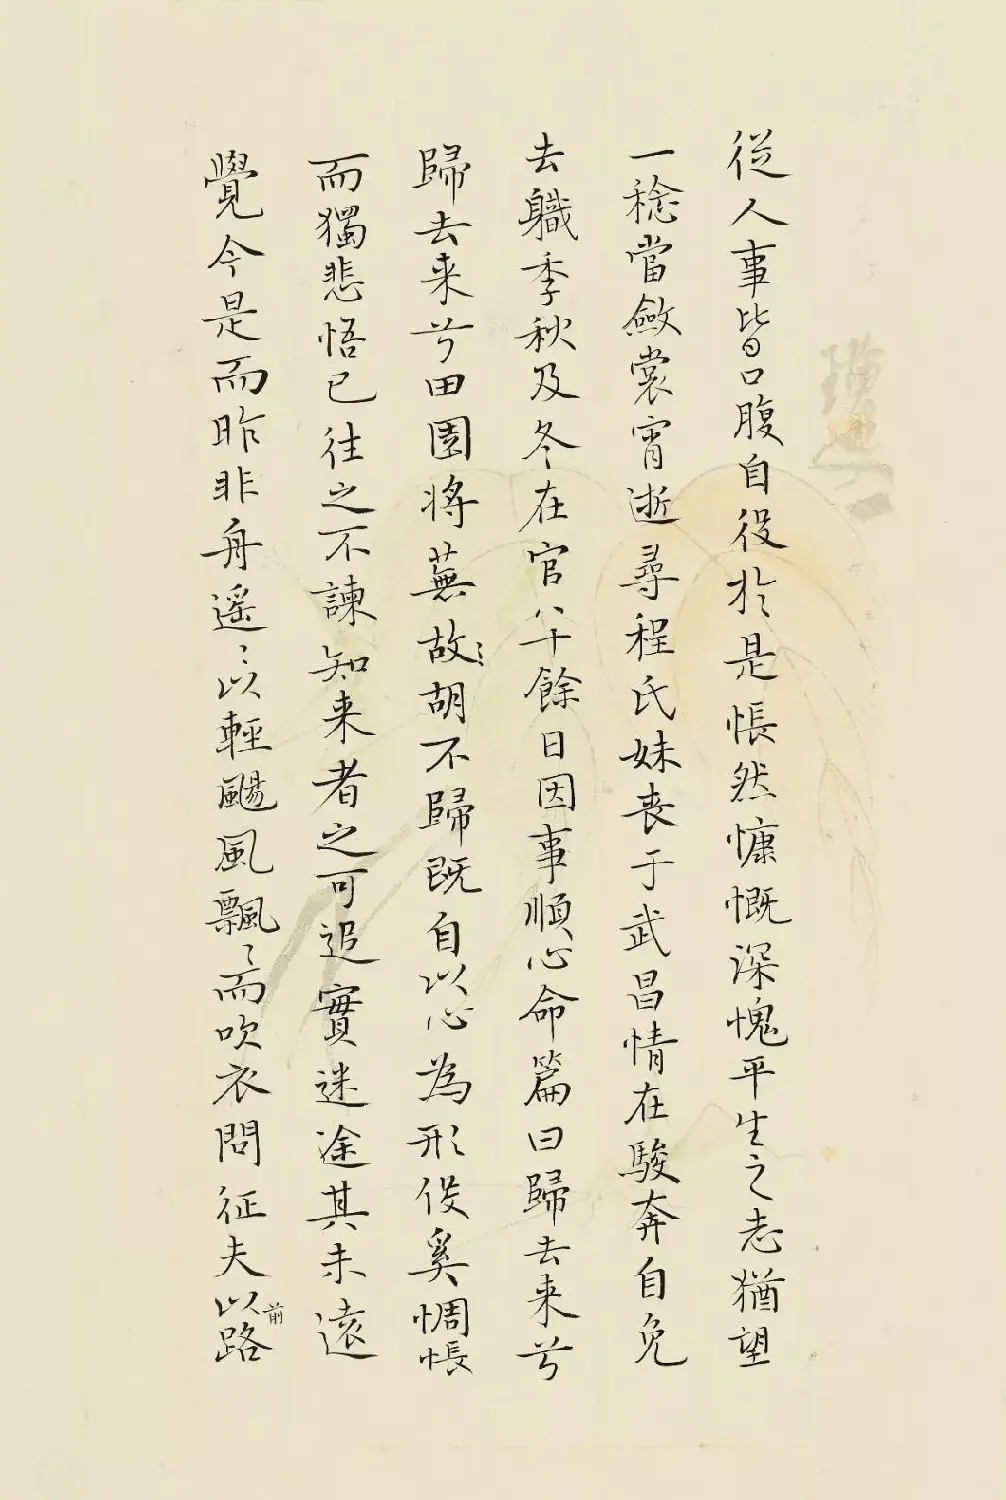 從人事皆口腹自役於是悵然慷慨深愧平生之志猶望
一稔當斂裳宵逝尋程氏妹喪于武昌情在駿奔自免
去職季秋及冬在官八十餘日因事順心命篇曰歸去来兮
歸去来兮田園将蕪故〻胡不歸既自以心為形役奚惆悵
而獨悲悟已往之不諫知来者之可追實迷途其未遠
覺今是而昨非舟遥〻以輕颺風飄〻而吹衣問征夫以前路